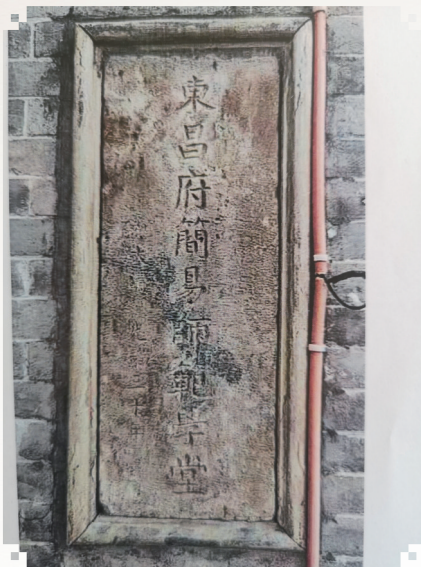 東昌府簡易師範學堂